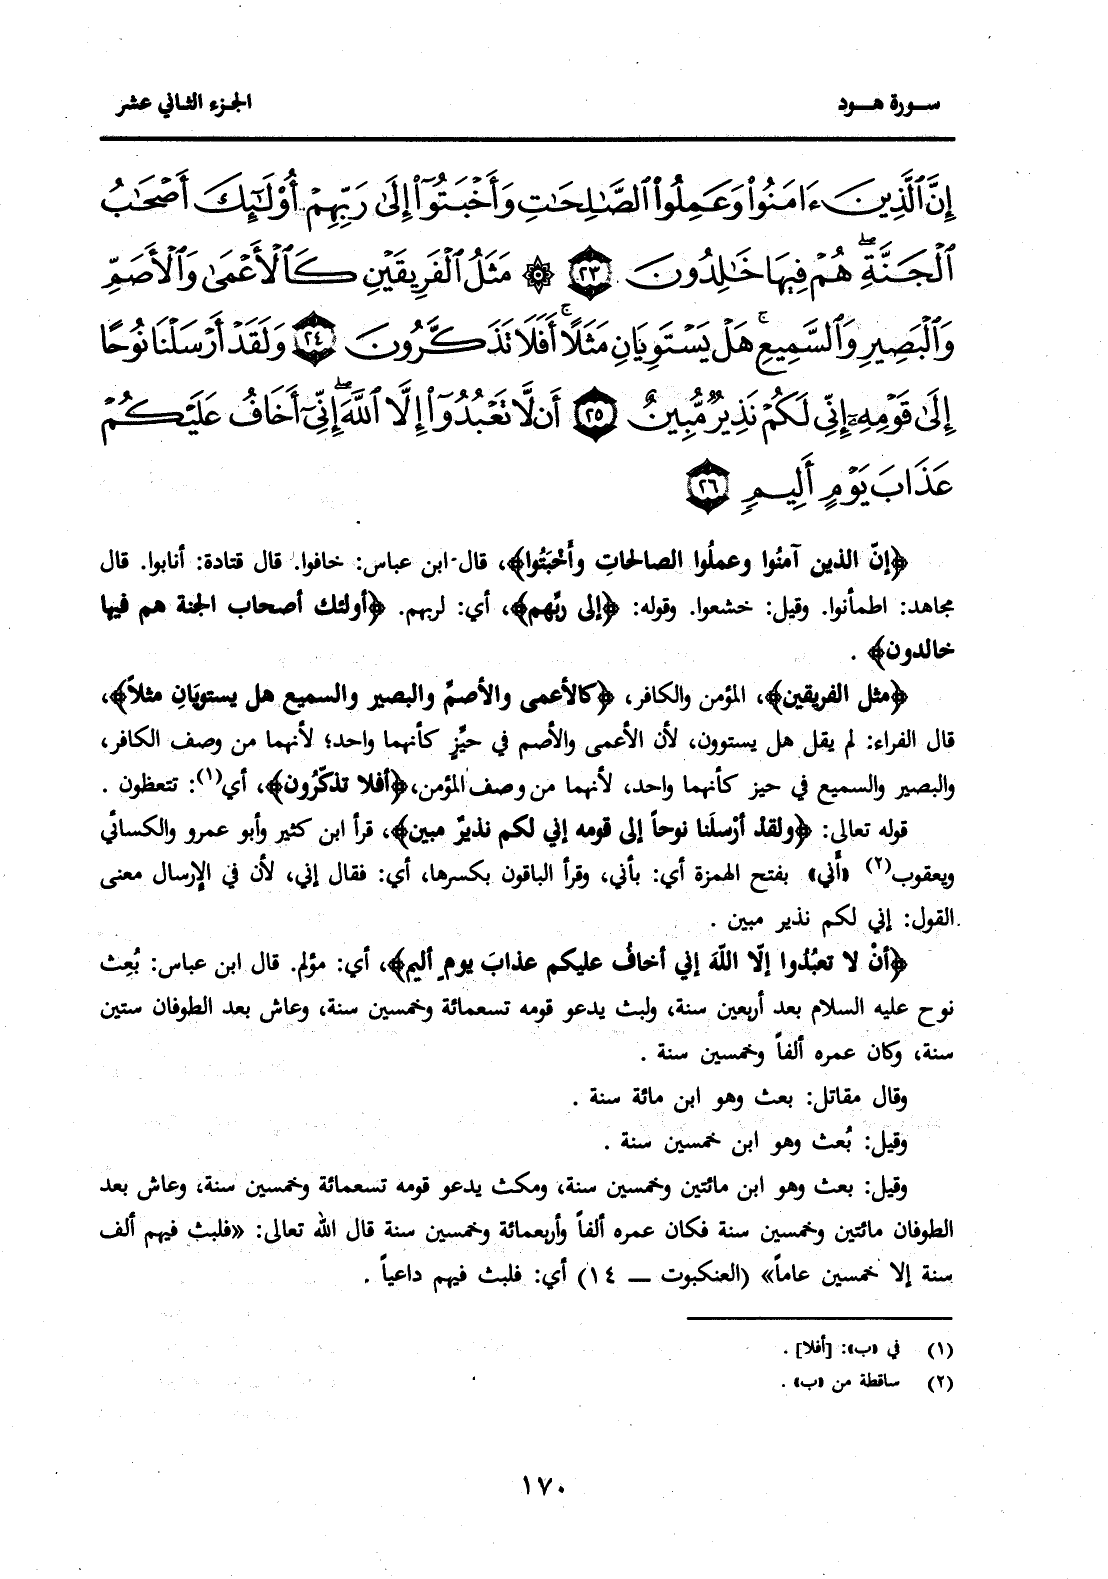 سورة هود
الجزء الثاني عشر
إِنَّ ٱلَّذِينَ ءَامَنُواْ وَعَمِلُواْ ٱلصَّٰلِحَٰتِ وَأَخۡبَتُوٓاْ إِلَىٰ رَبِّهِمۡ أُوْلَٰٓئِكَ أَصۡحَٰبُ
ٱلۡجَنَّةِۖ هُمۡ فِيهَا خَٰلِدُونَ ٢٣ ۞ مَثَلُ ٱلۡفَرِيقَيۡنِ كَٱلۡأَعۡمَىٰ وَٱلۡأَصَمِّ
وَٱلۡبَصِيرِ وَٱلسَّمِيعِۚ هَلۡ يَسۡتَوِيَانِ مَثَلًاۚ أَفَلَا تَذَكَّرُونَ ٢٤ وَلَقَدۡ أَرۡسَلۡنَا نُوحًا
إِلَىٰ قَوۡمِهِۦٓ إِنِّي لَكُمۡ نَذِيرٞ مُّبِينٌ ٢٥ أَن لَّا تَعۡبُدُوٓاْ إِلَّا ٱللَّهَۖ إِنِّيٓ أَخَافُ عَلَيۡكُمۡ
عَذَابَ يَوۡمٍ أَلِيمٖ ٢٦
﴿إنّ الذين آمنُوا وعملُوا الصالحاتِ وأَخْبَتُوا﴾، قال ابن عباس: خافوا. قال قتادة: أنابوا. قال
مجاهد: اطمأنوا. وقيل: خشعوا. وقوله: ﴿إلى ربِّهم﴾، أي: لربهم. ﴿أولئك أصحاب الجنة هم فيها
خالدون﴾ .
﴿مثل الفريقين﴾، المؤمن والكافر، ﴿كالأعمى والأصمِّ والبصير والسميع هل يستويَانِ مثلاً﴾،
قال الفراء: لم يقل هل يستوون، لأن الأعمى والأصم في حيِّزٍ كأنهما واحد؛ لأنهما من وصف الكافر،
والبصير والسميع في حيز كأنهما واحد، لأنهما من وصف المؤمن، ﴿أفلا تذكّرُون﴾، أي(١): تتعظون .
قوله تعالى: ﴿ولقدْ أرْسلَنا نوحاً إلى قومه إني لكم نذيرٌ مبين﴾، قرأ ابن كثير وأبو عمرو والكسائي
ويعقوب(٢) «أَني» بفتح الهمزة أي: بأني، وقرأ الباقون بكسرها، أي: فقال إني، لأن في الإرسال معنى
القول: إني لكم نذير مبين .
﴿أنْ لا تعبُدُوا إلّا اللّهَ إني أخافُ عليكم عذابَ يومٍ أليم﴾، أي: مؤلم. قال ابن عباس: بُعِث
نوح عليه السلام بعد أربعين سنة، ولبث يدعو قومه تسعمائة وخمسين سنة، وعاش بعد الطوفان ستين
سنة، وكان عمره ألفاً وخمسين سنة .
وقال مقاتل: بعث وهو ابن مائة سنة .
وقيل: بُعث وهو ابن خمسين سنة .
وقيل: بعث وهو ابن مائتين وخمسين سنة، ومكث يدعو قومه تسعمائة وخمسين سنة، وعاش بعد
الطوفان مائتين وخمسين سنة فكان عمره ألفاً وأربعمائة وخمسين سنة قال الله تعالى: «فلبث فيهم ألف
سنة إلا خمسين عاماً» (العنكبوت — ١٤) أي: فلبث فيهم داعياً .
(١) في «ب»: [أفلا] .
(٢) ساقطة من «ب» .
١٧٠